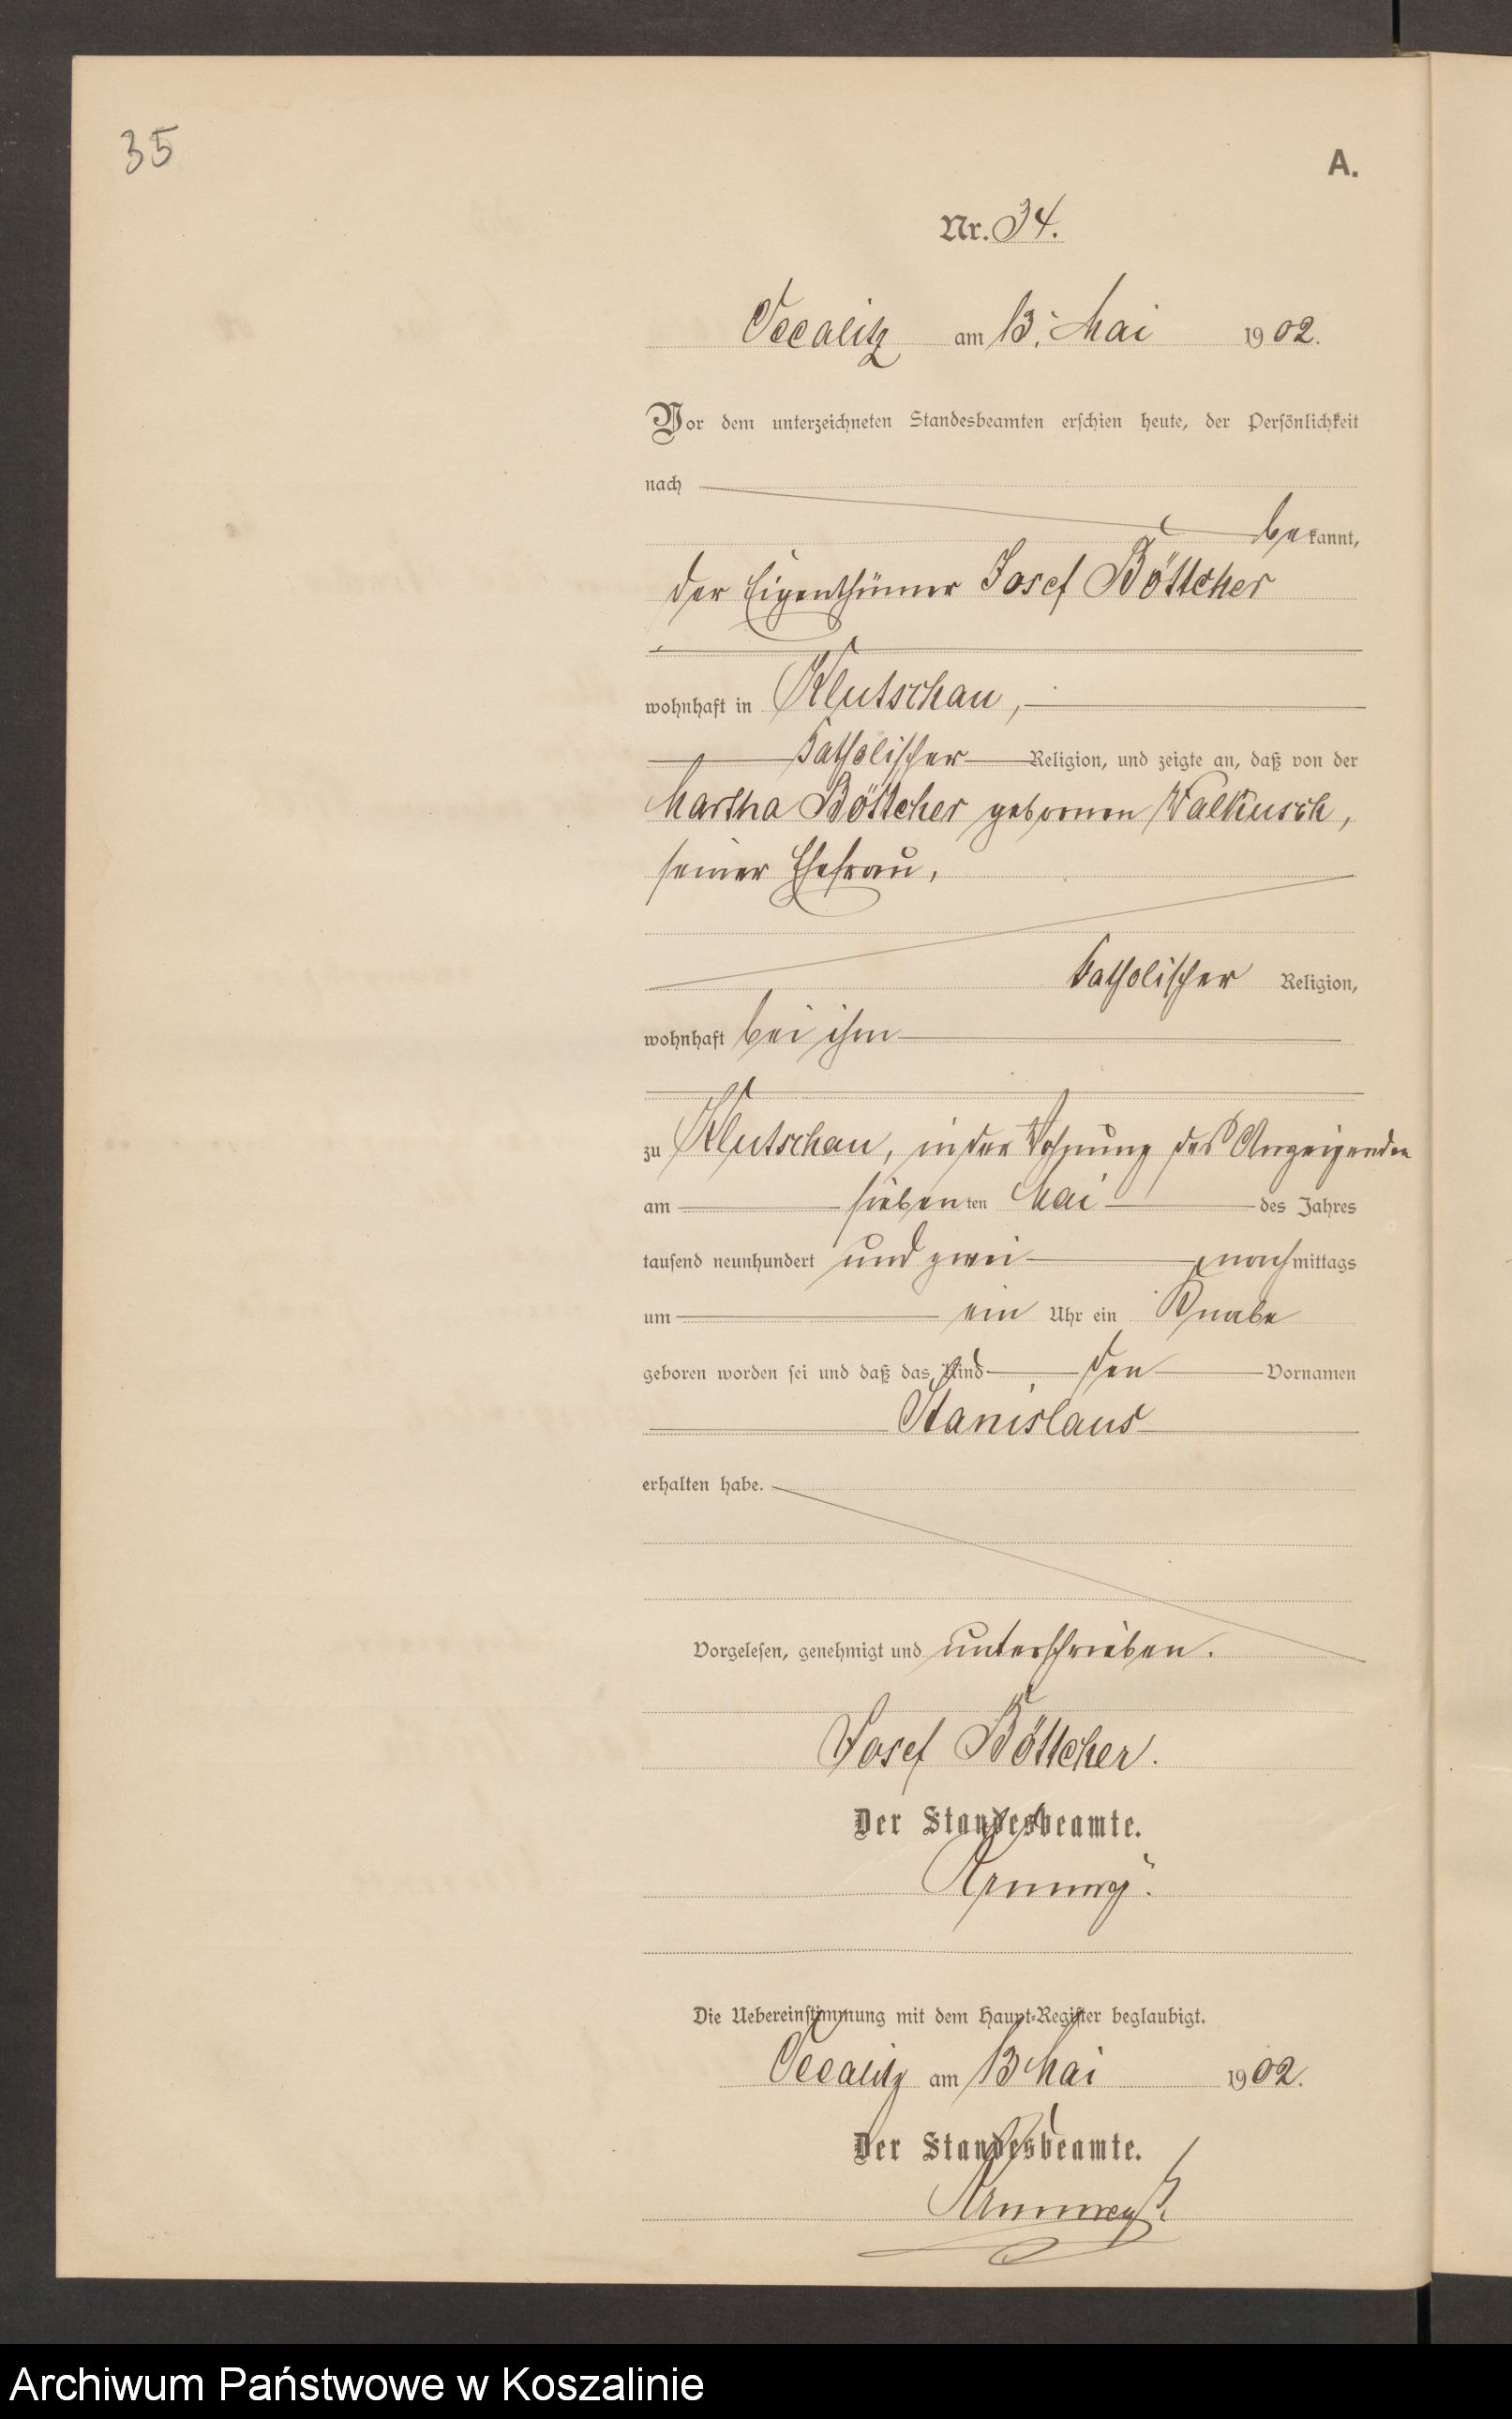 35
A.
Nr. 34.
Oscalitz am 13. Mai 1902.
Vor dem unterzeichneten Standesbeamten erschien heute, der Persönlichkeit
nach
bekannt,
der Eigenthümer Josef Böttcher
wohnhaft in Klutschau,
katholischer Religion, und zeigte an, daß von der
Martha Böttcher gebornen Walkusch,
seiner Ehefrau,
katholischer Religion,
wohnhaft bei ihm
zu Klutschau, in der Wohnung des Anzeigenden
am siebenten Mai des Jahres
tausend neunhundert und zwei nachmittags
um ein Uhr ein Knabe
geboren worden sei und daß das Kind den Vornamen
Stanislaus
erhalten habe.
Vorgelesen, genehmigt und unterschrieben.
Josef Böttcher.
Der Standesbeamte.
Die Uebereinstimmung mit dem Haupt-Register beglaubigt.
Oscalitz am 13 Mai 1902.
Der Standesbeamte.
Archiwum Państwowe w Koszalinie